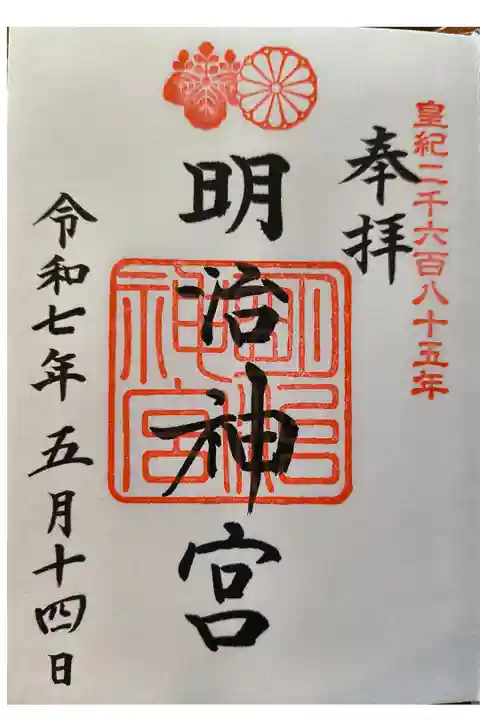 皇紀二千六百八十五年
奉拝
明治神宮
明治神宮
令和七年五月十四日